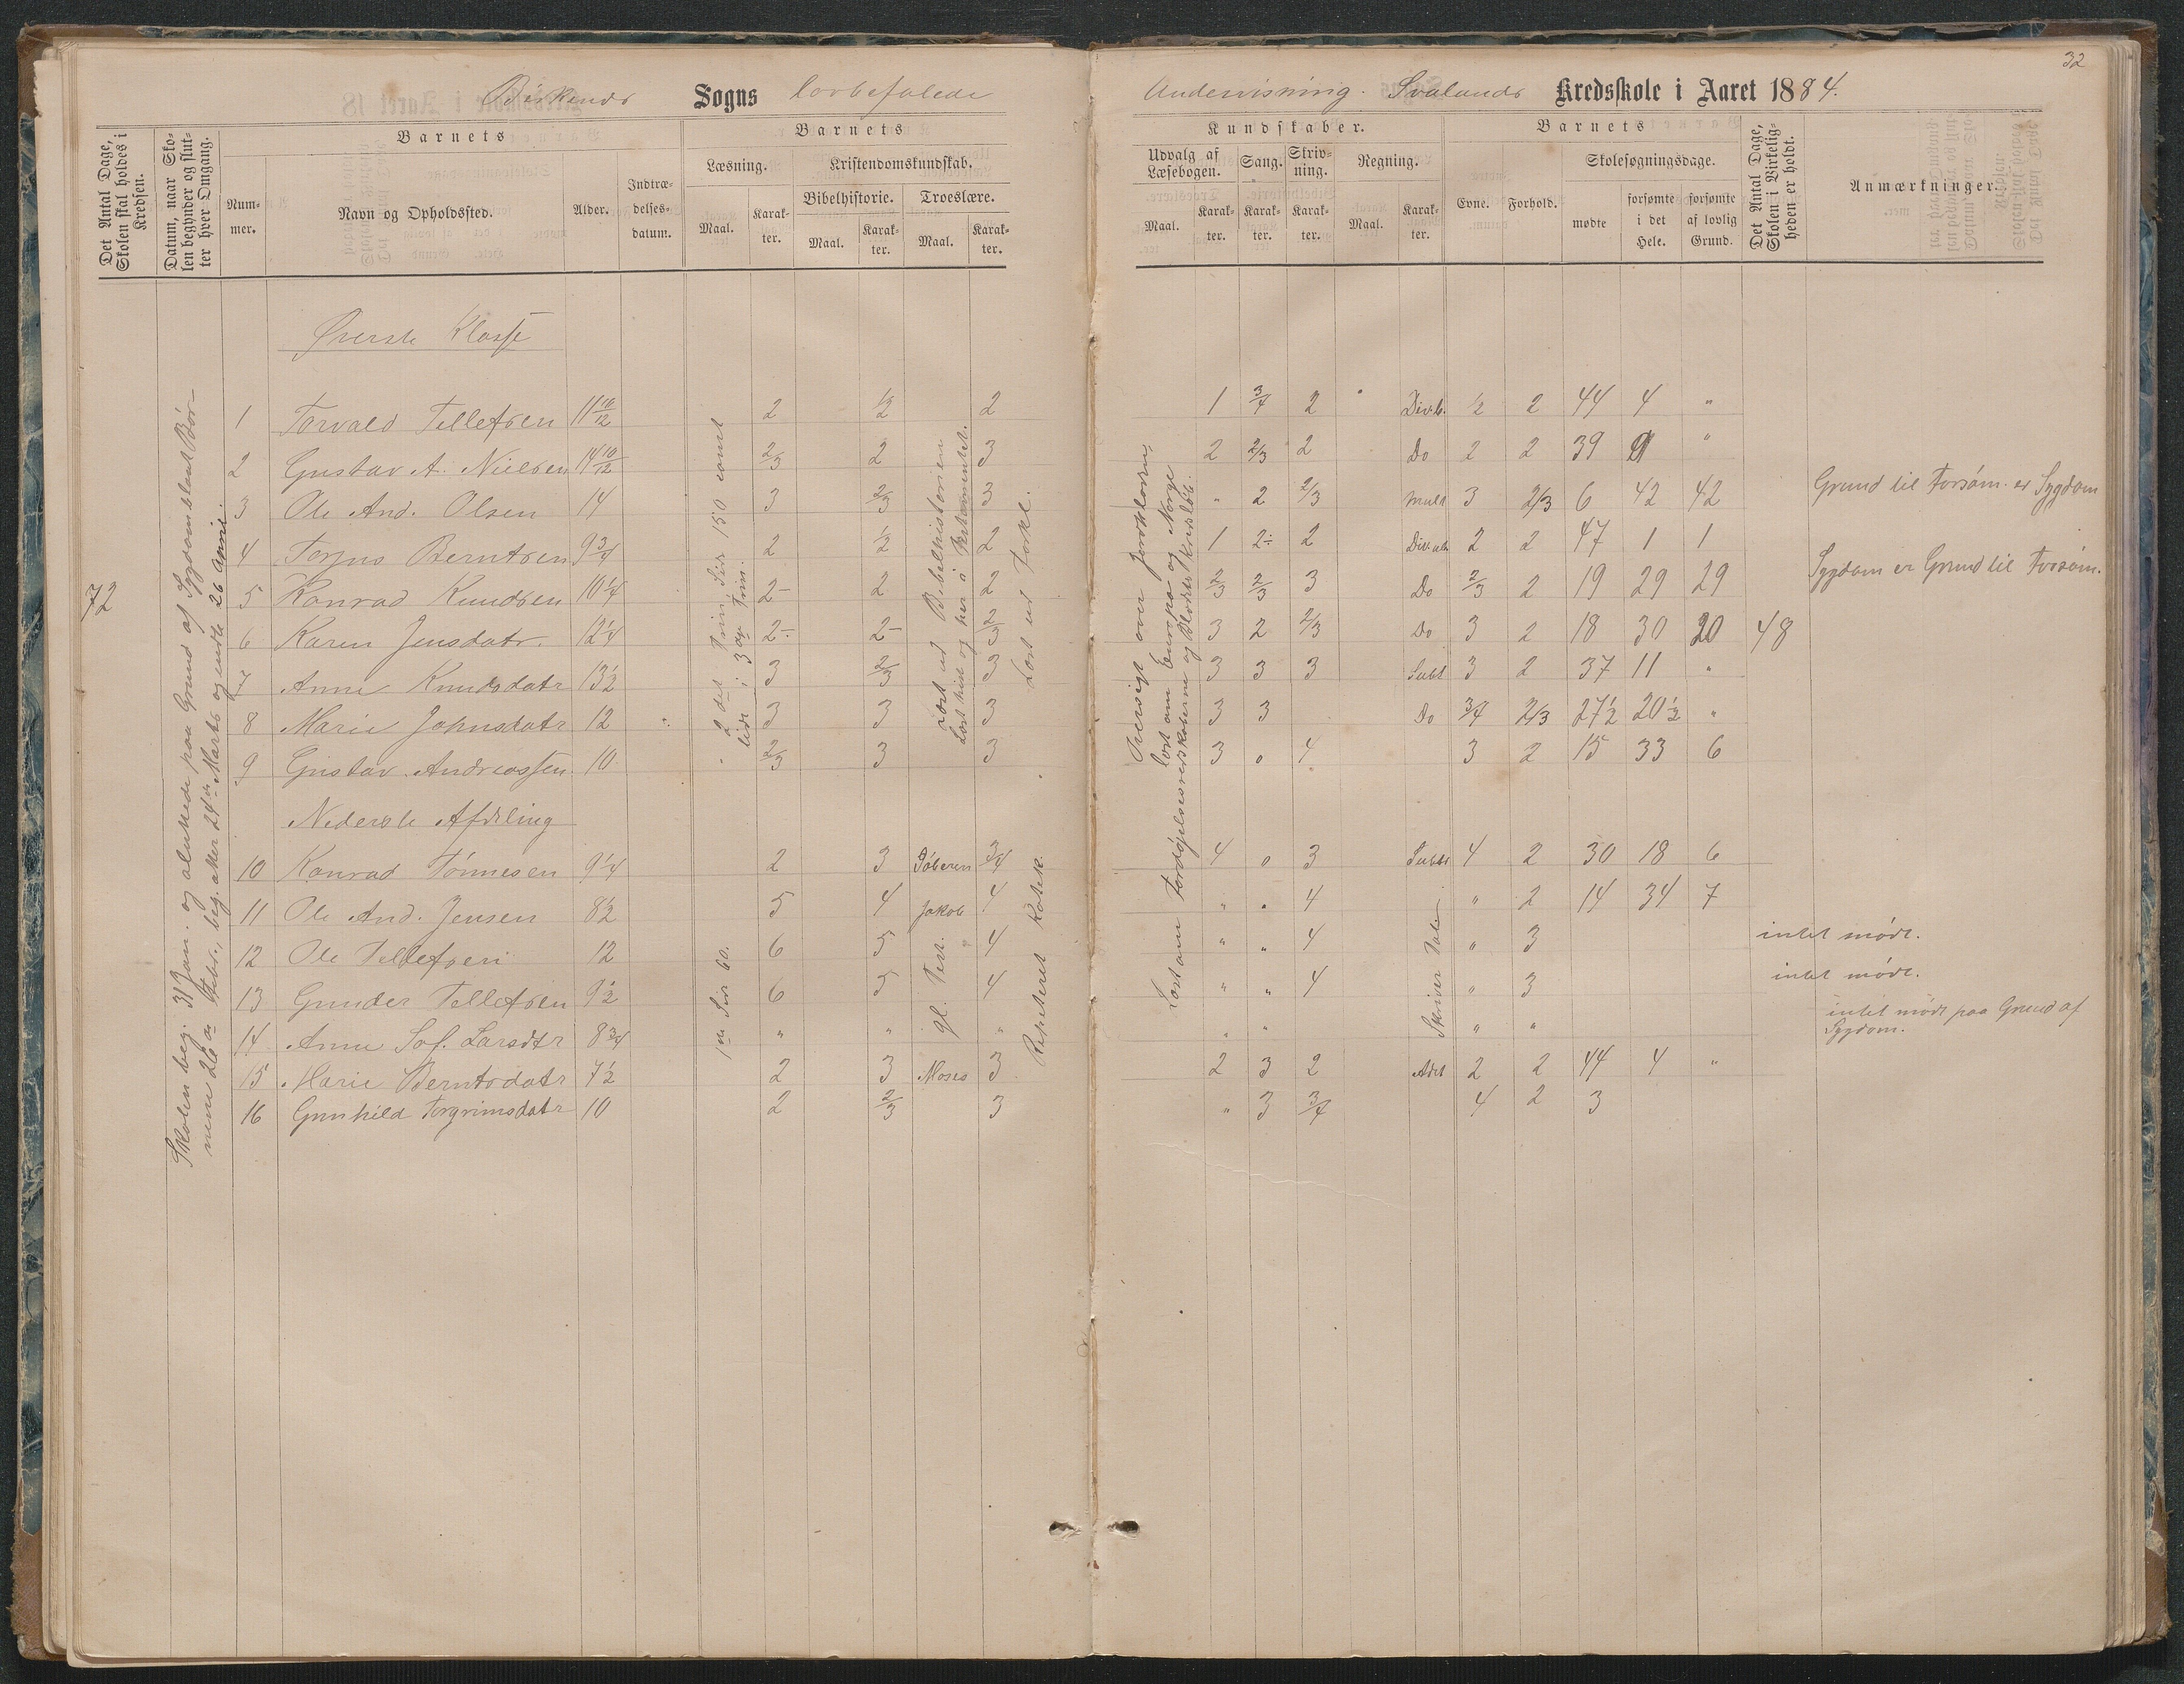 32
Birkends Sogns lovbefalede Undervisning. Svalands Kredsskole i Aaret 1884.
Det Antal Dage, Skolen skal holdes i Kredsen.
Datum, naar Skolen begynder og slutter hver Omgang.
Barnets
Nummer.
Navn og Opholdssted.
Alder.
Indtrædelsesdatum.
Barnets
Læsning.
Maal.
Karakter.
Kristendomskundskab.
Bibelhistorie.
Maal.
Karakter.
Troeslære.
Maal.
Karakter.
Kundskaber.
Udvalg af Læsebogen.
Maal.
Karakter.
Sang.
Karakter.
Skrivning.
Karakter.
Regning.
Maal.
Karakter.
Barnets
Evne.
Forhold.
Skolesøgningsdage.
mødte
forsømte i det Hele.
forsømte af lovlig Grund.
Det Antal Dage, Skolen i Virkeligheden er holdt.
Anmærkninger.
72
Skolen beg. 31 Jan. og sluttede paa Grund af Sygdom blant Bør-
nene 26de Febr., beg. atter 24de Marts og endte 26 April.
Øverste Klasse
1 Torvald Tellefsen 11 10/12 2 1/2 2 1 3/4 2 Div.b. 1/2 2 44 4 "
2 Gustav A. Nielsen 14 10/12 2/3 2 3 2 2/3 2 Do 2 2 39 9 "
3 Ole And. Olsen 14 3 2/3 3 " 2 2/3 Mult 3 2/3 6 42 42 Grund til Forsøm. er Sygdom
4 Torjus Berntsen 9 3/4 2 1/2 2 1 2÷ 2 2 2 47 1 1
5 Konrad Knudsen 10 1/4 2- 2 2 2/3 2/3 3 Do 2/3 2 19 29 29 Sygdom er Grund til Forsøm.
6 Karen Jensdatr. 12 1/4 2÷ 2- 2/3 3 2 2/3 Do 3 2 18 30 20 48
7 Anne Knudsdatr 13 1/2 3 2/3 3 3 3 3 Subt 3 2 37 11 "
8 Marie Johnsdatr 12 3 3 3 3 3 Do 3/4 2/3 27 1/2 20 1/2 "
9 Gustav Andreassen 10 2/3 3 3 3 0 4 3 2 15 33 6
Nederste Afdeling
10 Konrad Tønnesen 9 1/4 2 3 3/4 4 0 3 Subt 4 2 30 18 6
11 Ole And. Jensen 8 1/2 5 4 Jakob 4 " " 4 " 2 14 34 7
12 Ole Tellefsen 12 6 5 4 " " 4 " 3 intet mødt.
13 Gunder Tellefsen 9 1/2 6 5 4 " " 4 " 3 intet mødt.
14 Anne Sof. Larsdtr 8 3/4 " " " " " " " intet mødt paa Grund af
Sygdom.
15 Marie Berntsdatr 7 1/2 2 3 Moses 3 2 3 2 Adit 2 2 44 4 "
16 Gunhild Torgrimsdatr 10 2 2/3 3 " 3 3/4 4 2 3
2det Trin Side 150 samt
lidt i 3die Trin.
1ste Side 60.
Læst ud Bibelhistorien
Læst hist og her i Testamentet.
gl. Test.
Læst ud Forkl.
Repeteret Katek.
Oversigt over Jordkloden,
læst om Europa og Norge
Læst om Fordøjelsesredskaberne og Blodets Kredsløb.
Skriver Tal